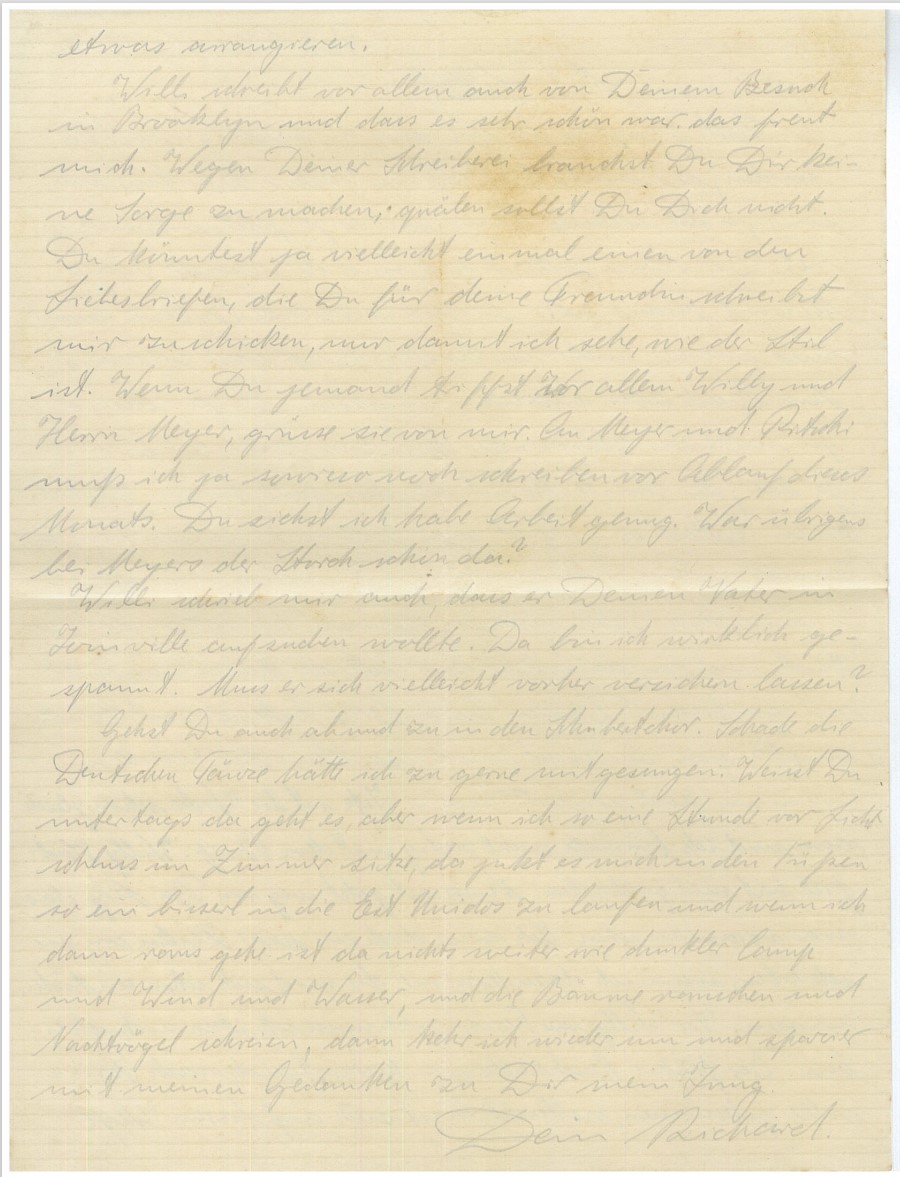 etwas arrangieren.
Willi schreibt vor allem auch von Deinem Besuch
in Brooklyn und dass es sehr schön war. das freut
mich. Wegen Deiner Schreiberei brauchst Du Dir kei-
ne Sorge zu machen, quälen sollst Du Dich nicht.
Du könntest ja vielleicht einmal einen von den
Liebesbriefen, die Du für deine Freundin schreibst
mir zuschicken, nur damit ich sehe, wie der Stil
ist. Wenn Du jemand triffst vor allem Willy und
Herrn Meyer, grüsse sie von mir. An Meyer und
muß ich ja sowieso noch schreiben vor Ablauf dieses
Monats. Du siehst ich habe Arbeit genug. War übrigens
bei Meyers der Storch schon da?
Willi schrieb mir auch, dass er Deinen Vater in
aufsuchen wollte. Da bin ich wirklich ge-
spannt. Muss er sich vielleicht vorher versichern lassen?
Gehst Du auch ab und zu in den Schubertchor. Schade die
Deutschen Tänze hätte ich zu gerne mitgesungen. Weisst Du
untertags da geht es, aber wenn ich so eine Stunde vor Licht
schluss im Zimmer sitze, da juckt es mich in den Füßen
so ein bisserl in die Est Unidos zu laufen und wenn ich
dann raus gehe ist da nichts weiter wie dunkler Camp
und Wind und Wasser, und die Bäume rauschen und
Nachtvögel schreien, dann kehr ich wieder um und spazier
mit meinen Gedanken zu Dir mein Jung
Dein Richard.